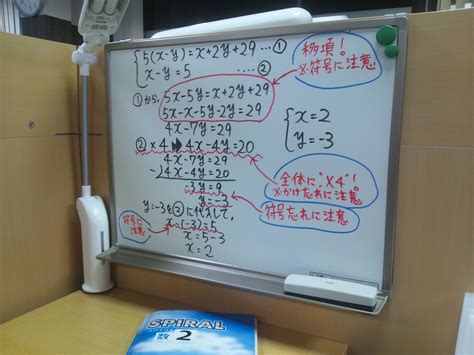 5(x-y)=x+2y+29 …①
x-y=5 …②
①から, 5x-5y=x+2y+29
5x-x-5y-2y=29
4x-7y=29
②×4 ➡ 4x-4y=20
4x-7y=29
-) 4x-4y=20
-3y=9
y=-3
y=-3を②に代入して,
x-(-3)=5
x=5-3
x=2
符号に注意
移項!
※符号に注意
x=2
y=-3
全体に"×4"!
※かけ忘れに注意
符号忘れに注意
SPIRAL
数 2